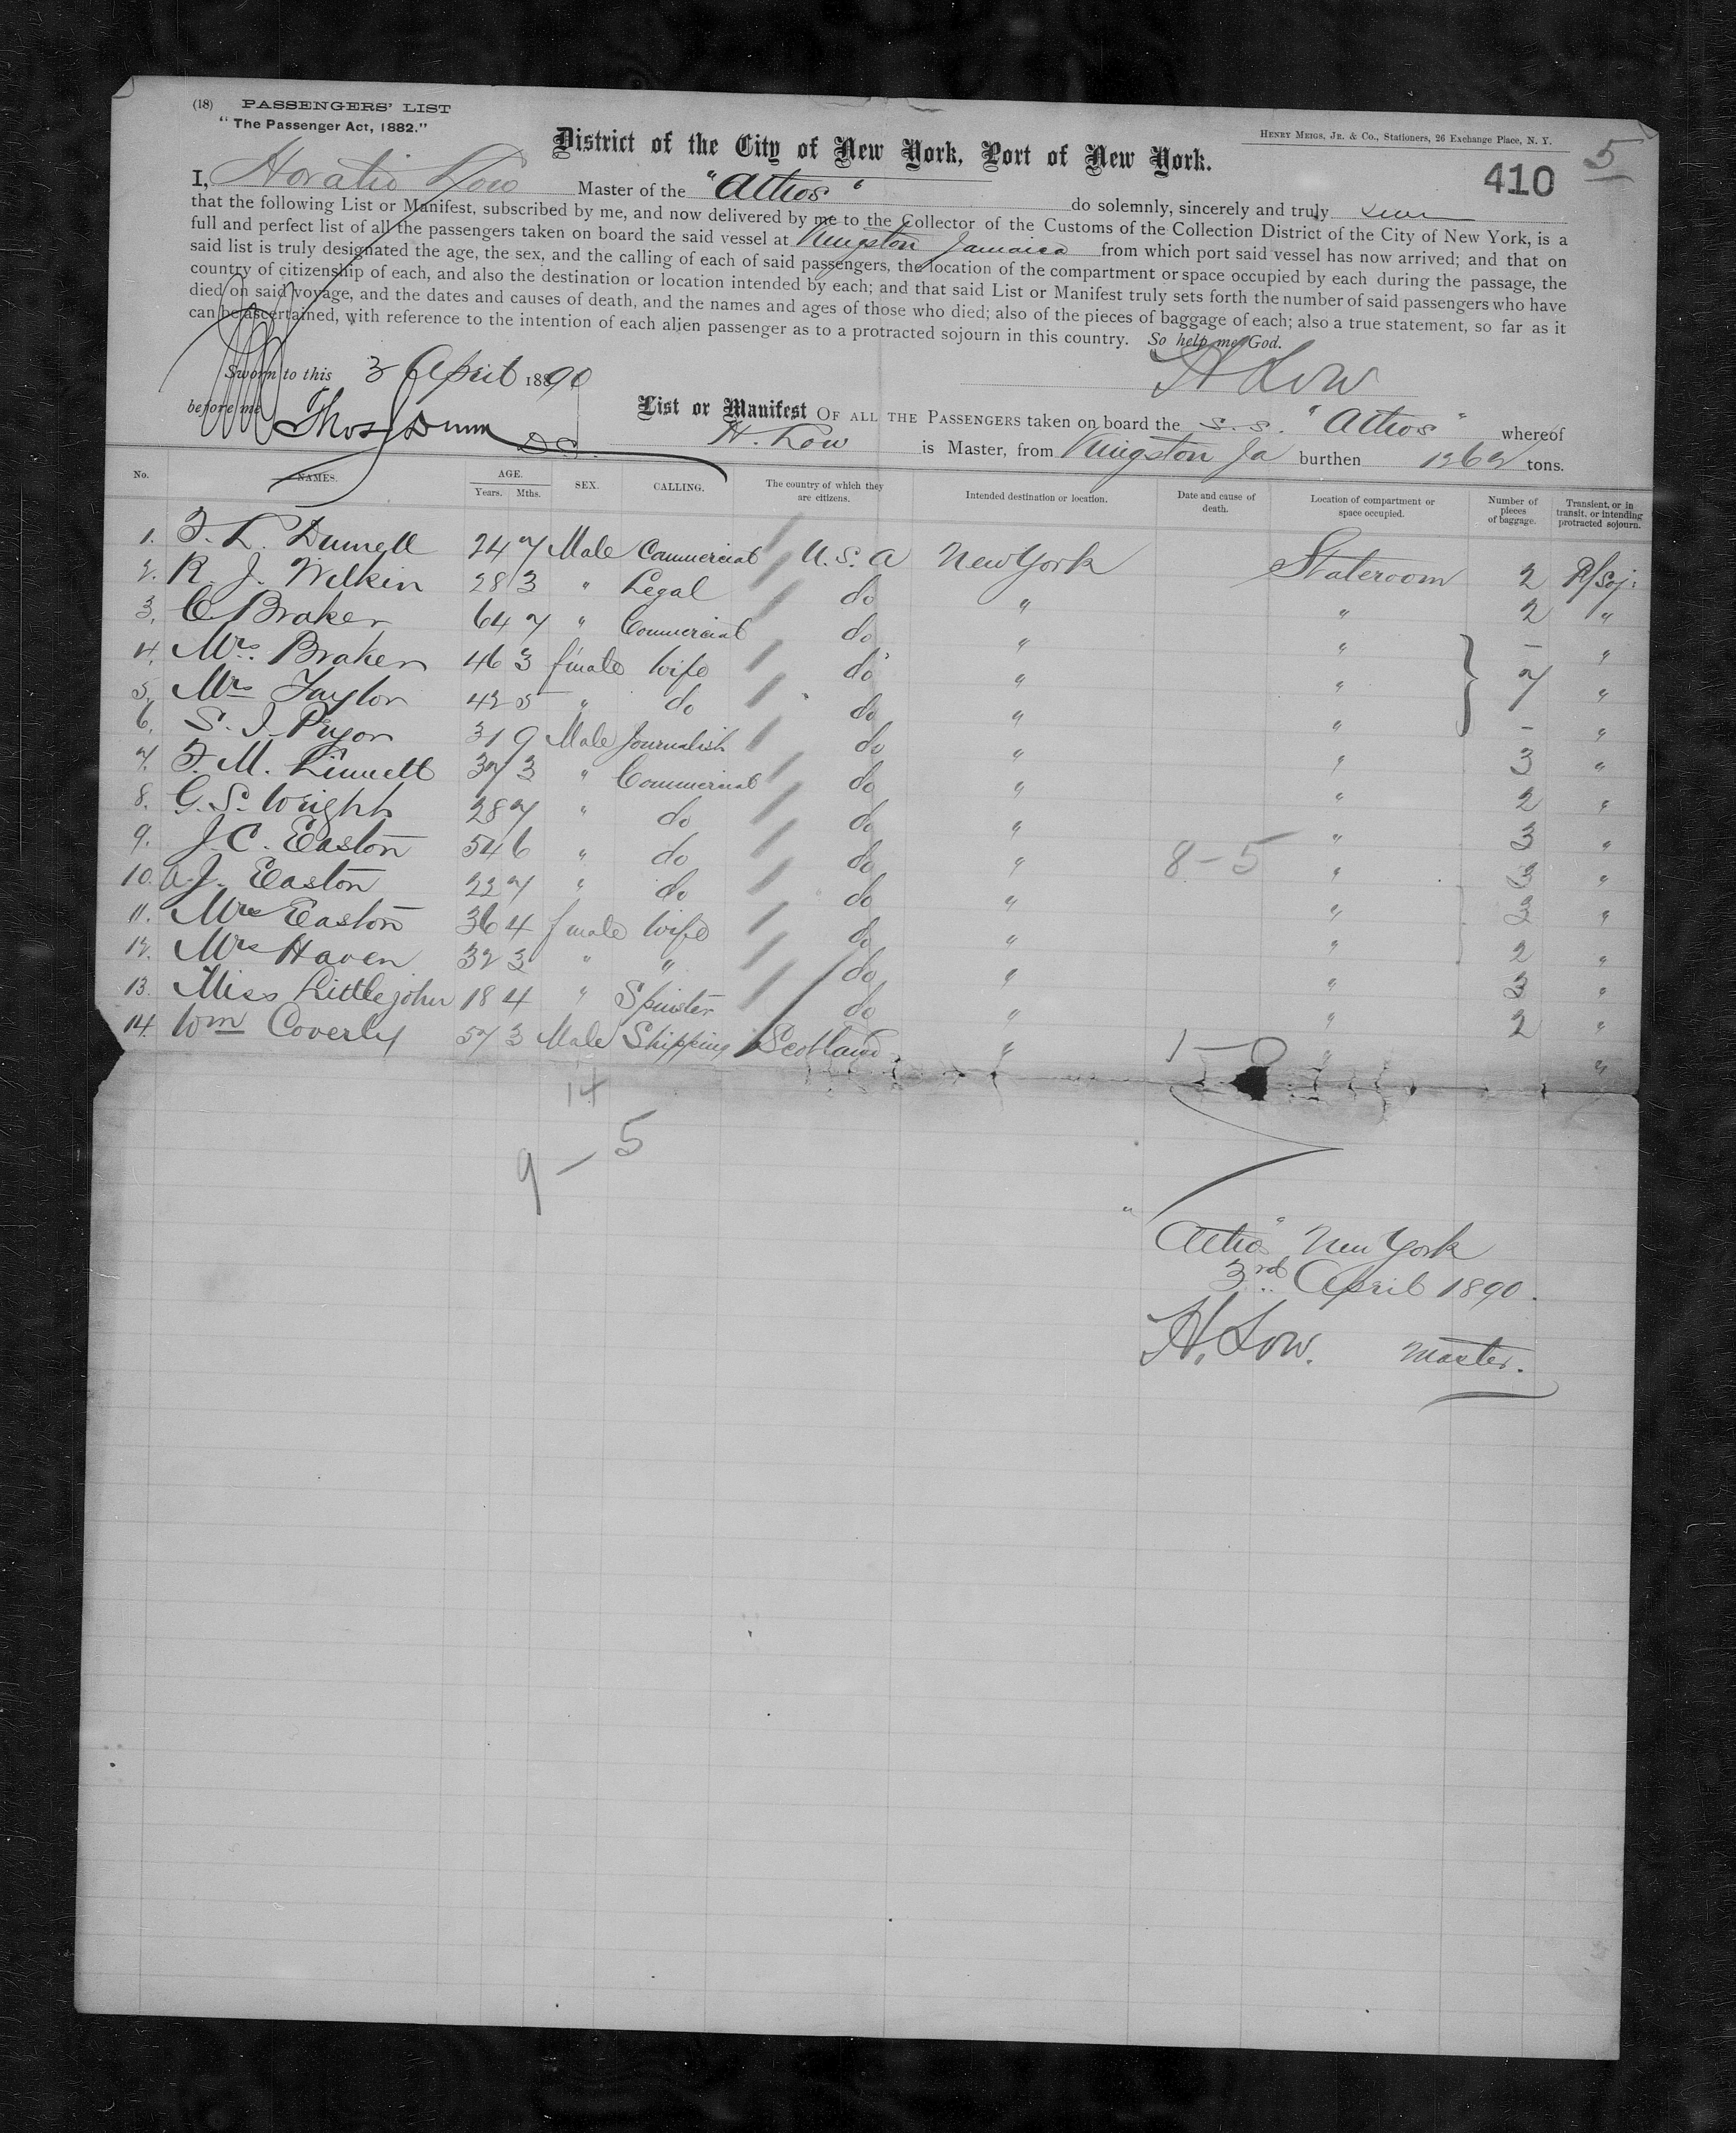 (18) PASSENGERS' LIST
"The Passenger Act, 1882."
HENRY MEIGS, JR. & CO., Stationers, 26 Exchange Place, N. Y.
5
District of the City of New York, Port of New York.
410
I, Horatio Low Master of the "Athos" do solemnly, sincerely and truly swear
that the following List or Manifest, subscribed by me, and now delivered by me to the Collector of the Customs of the Collection District of the City of New York, is a
full and perfect list of all the passengers taken on board the said vessel at Kingston Jamaica from which port said vessel has now arrived; and that on
said list is truly designated the age, the sex, and the calling of each of said passengers, the location of the compartment or space occupied by each during the passage, the
country of citizenship of each, and also the destination or location intended by each; and that said List or Manifest truly sets forth the number of said passengers who have
died on said voyage, and the dates and causes of death, and the names and ages of those who died; also of the pieces of baggage of each; also a true statement, so far as it
can be ascertained, with reference to the intention of each alien passenger as to a protracted sojourn in this country. So help me God.
Sworn to this 3 April 1890
H Low
before me Thos Dunn DC
List or Manifest OF ALL THE PASSENGERS taken on board the S.S. "Athos" whereof
H. Low is Master, from Kingston Ja burthen 1262 tons.
No. NAMES. AGE. Years. Mths. SEX. CALLING. The country of which they are citizens. Intended destination or location. Date and cause of death. Location of compartment or space occupied. Number of pieces of baggage. Transient, or in transit, or intending protracted sojourn.
1. F. L. Dumell 24 7 Male Commercial U.S.A New York Stateroom 2 P/Soj:
2. R. J. Wilkin 28 3 " Legal do " " 2 "
3. C Braker 64 7 " Commercial do " " - "
4. Mrs. Braker 46 3 female Wife do " " 7 "
5. Mrs Taylor 42 5 " do do " " - "
6. S. I. Pryor 31 9 Male Journalist do " " 3 "
7. F. M. Linnell 37 3 " Commercial do " " 2 "
8. G. S. Wright 28 7 " do do " " 3 "
9. J. C. Easton 54 6 " do do " 8-5 " 3 "
10. A. J. Easton 22 7 " do do " " 3 "
11. Mrs Easton 36 4 female Wife do " " 2 "
12. Mrs Haven 32 3 " " do " " 3 "
13. Miss Littlejohn 18 4 " Spinster do " " 2 "
14. Wm Coverly 57 3 Male Shipping Scotland " 1-0 " "
14
9-5
"Athos" New York
3rd April 1890.
H. Low. Master.